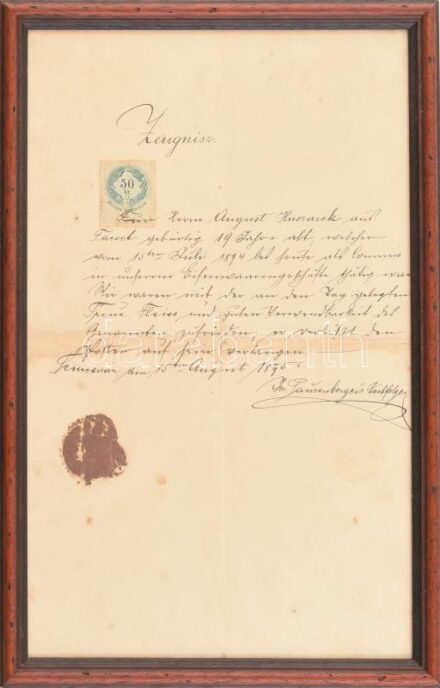 Zeugniss
50
kr.
Für Herrn August Huszarek aus
Facset gebürtig 19 Jahre alt, welcher
vom 15ten Juli 1894 bis heute als Commis
in unserem Eisenwaarengeschäfte thätig war
Wir waren mit der an den Tag gelegten
Treue, Fleiss und guten Verwendbarkeit des
Genannten zufrieden, er verlässt den
Posten auf sein verlangen.
Temesvar am 15ten August 1895
Nachfolger
darabanth